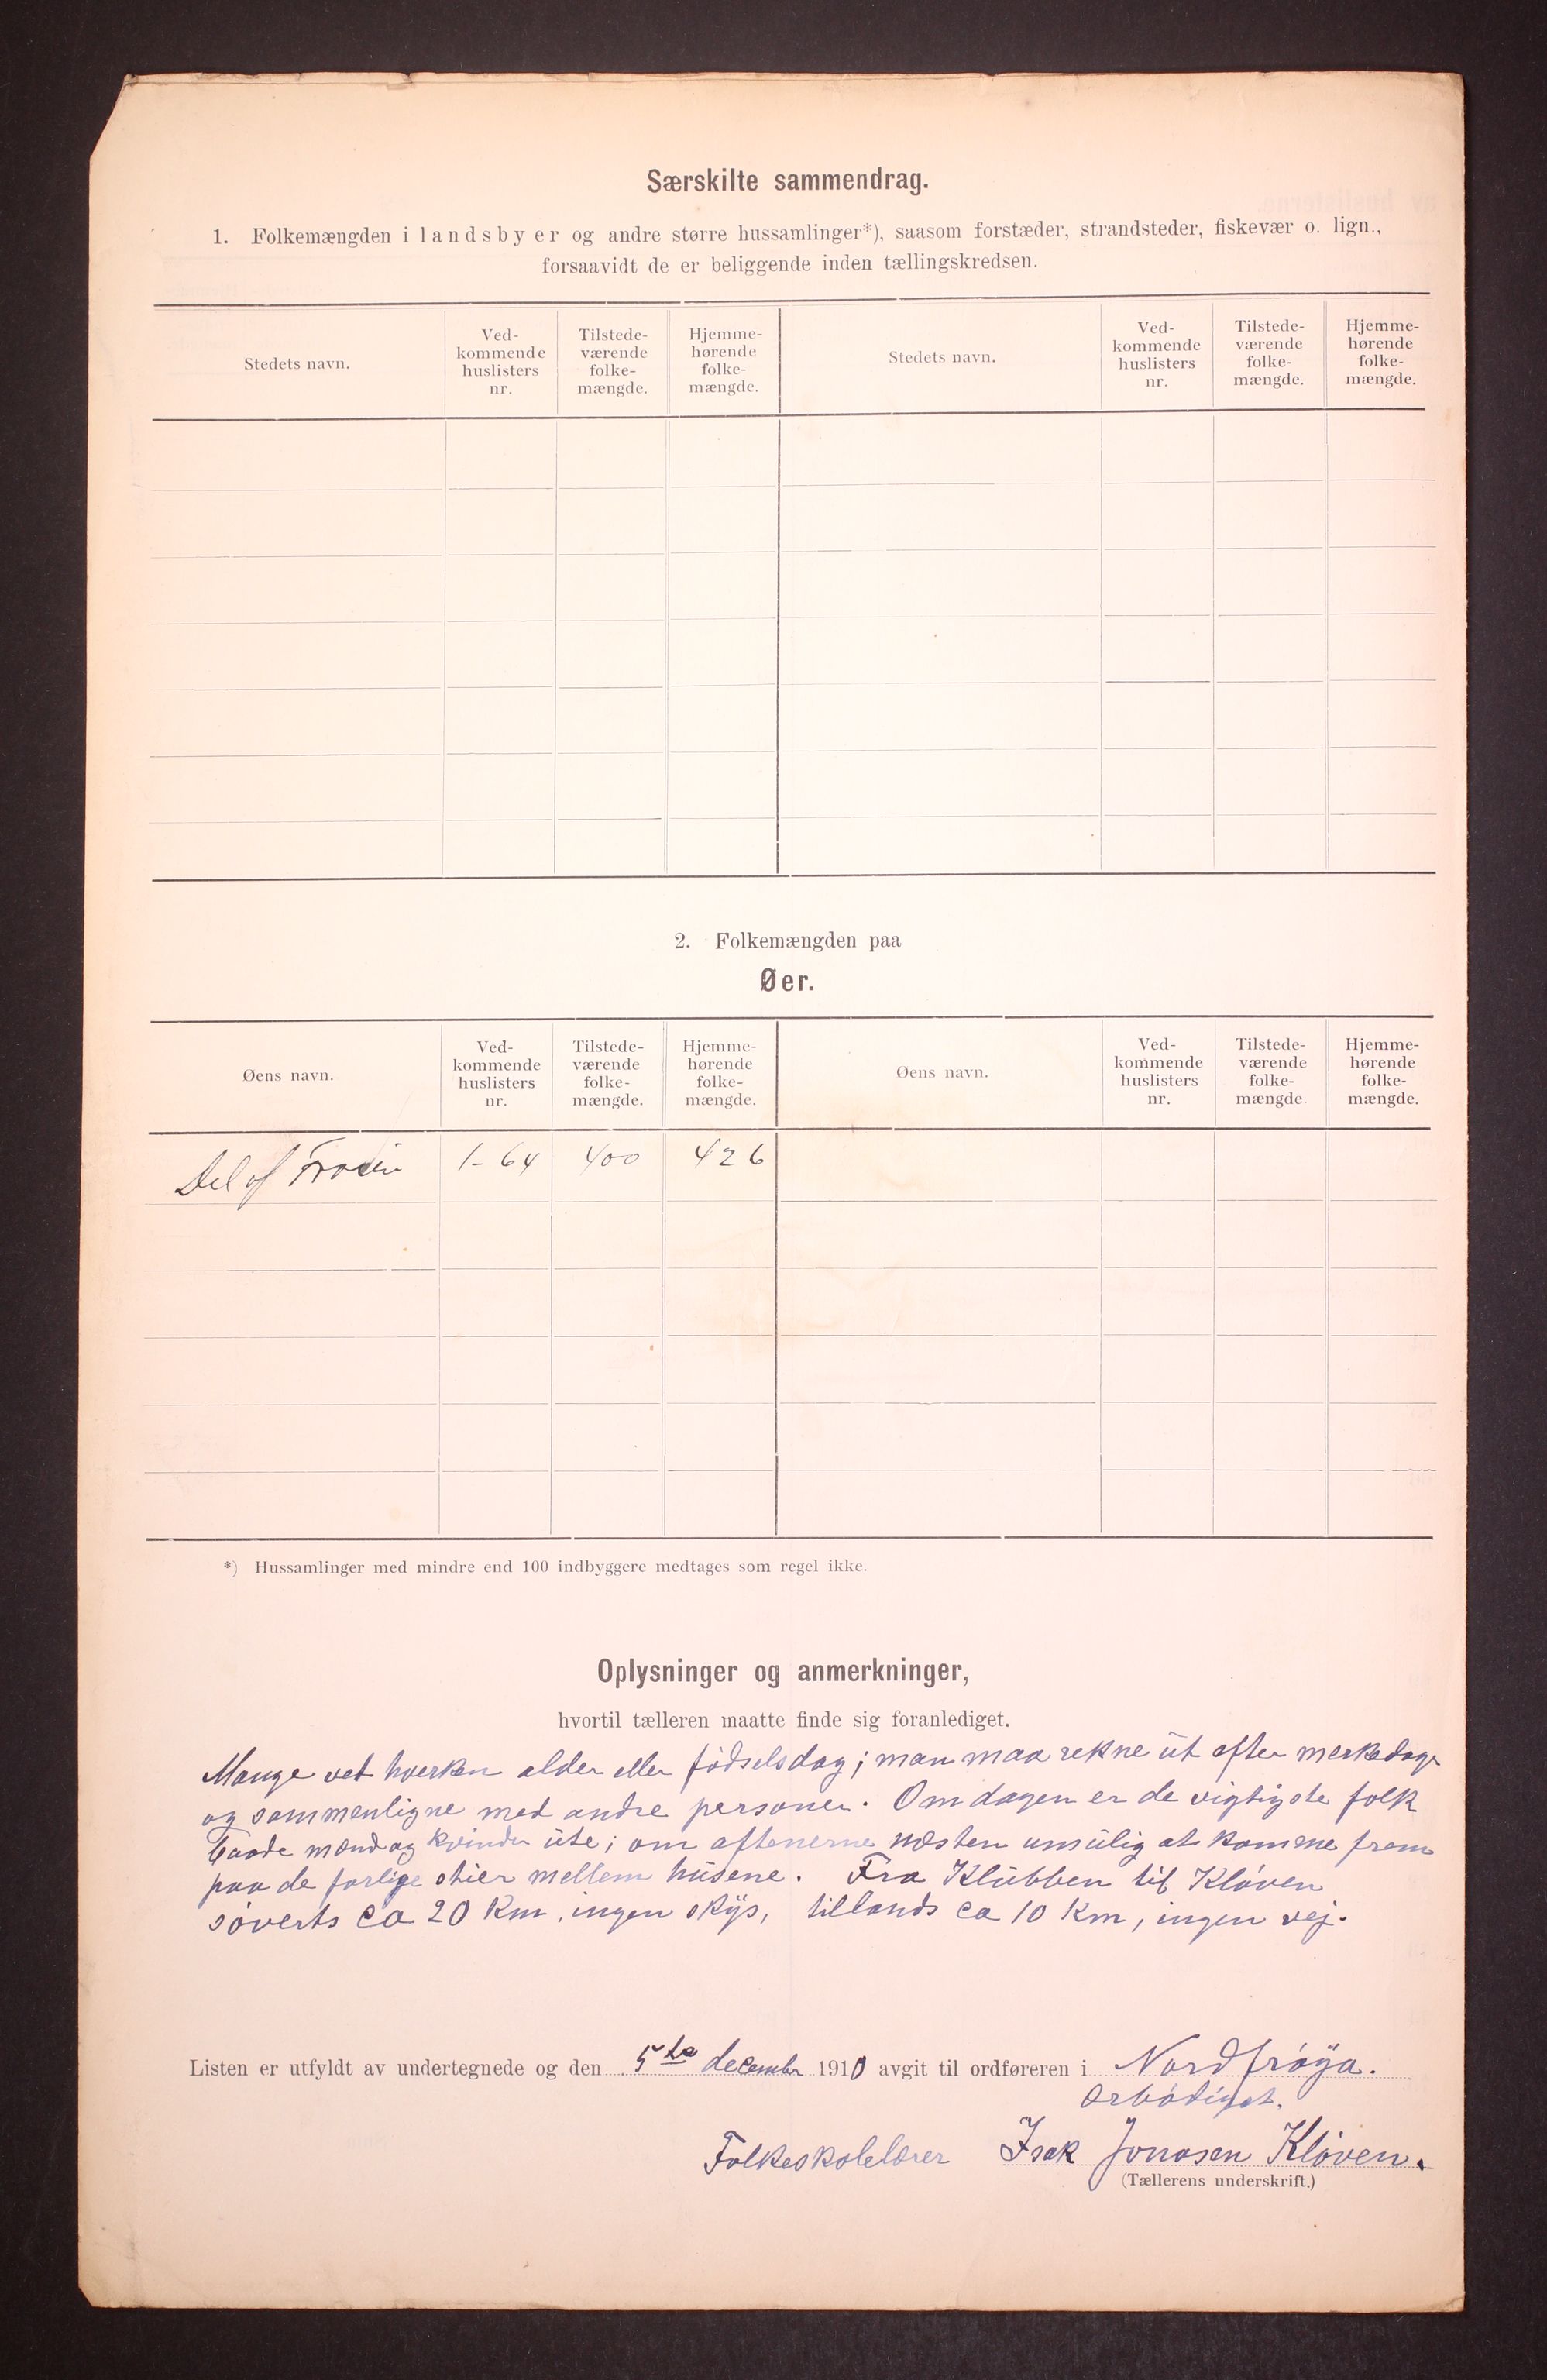 Særskilte sammendrag.
1. Folkemængden i landsbyer og andre større hussamlinger*), saasom forstæder, strandsteder, fiskevær o. lign.,
forsaavidt de er beliggende inden tællingskredsen.
Stedets navn.
Ved-
kommende
huslisters
nr.
Tilstede-
værende
folke-
mængde.
Hjemme-
hørende
folke-
mængde.
Stedets navn.
Ved-
kommende
huslisters
nr.
Tilstede-
værende
folke-
mængde.
Hjemme-
hørende
folke-
mængde.
2. Folkemængden paa
Øer.
Øens navn.
Ved-
kommende
huslisters
nr.
Tilstede-
værende
folke-
mængde.
Hjemme-
hørende
folke-
mængde.
Øens navn.
Ved-
kommende
huslisters
nr.
Tilstede-
værende
folke-
mængde.
Hjemme-
hørende
folke-
mængde.
Del af 1-64 400 426
*) Hussamlinger med mindre end 100 indbyggere medtages som regel ikke.
Oplysninger og anmerkninger,
hvortil tælleren maatte finde sig foranlediget.
Mange vet hverken alder eller fødselsdag; man maa rekne ut efter merkedage
og sammenligne med andre personer. Om dagen er de vigtigste folk
baade mænd og kvinder ute; om aftenerne næsten umulig at komme frem
paa de farlige stier mellem husene. Fra Klubben til Kløven
søverts ca 20 Km, ingen skys, tillands ca 10 Km, ingen vej.
Listen er utfyldt av undertegnede og den 5te december 1910 avgit til ordføreren i Nordfrøya.
Ærbødigst.
Folkeskolelærer Isak Jonasen Kløven.
(Tællerens underskrift.)